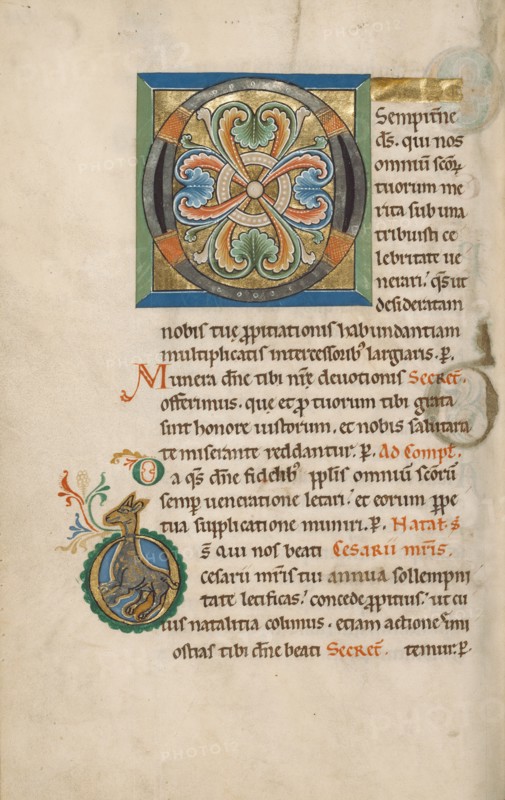 Sempitn̄e
ds̄. qui nos
omniū scōꝝ
tuorum me
rita sub una
tribuisti ce
lebritate ue
nerari. q̄s ut
desideratam
nobis tuę ꝓpitiationis habundantiam
multiplicatis intercessorib; largiaris. P.
Munera dn̄e tibi nr̄ę deuotionis Secret̄.
offerimus. que et ꝓ tuorum tibi grata
sint honore iustorum. et nobis salutaria
te miserante reddantur. P. Ad Compl̄.
Da q̄s dn̄e fidelib; pplīs omniū scōrū
semꝑ ueneratione letari. et eorum ꝑpe
tua supplicatione muniri. P. Natal̄. S
Ds̄ qui nos beati Cesarii mr̄is.
cesarii mr̄is tui annua sollempni
tate letificas. concede ꝓpitius. ut cu
ius natalitia colimus. etiam actione imi
ostias tibi dn̄e beati Secret̄. temur. P.
PHOTO12